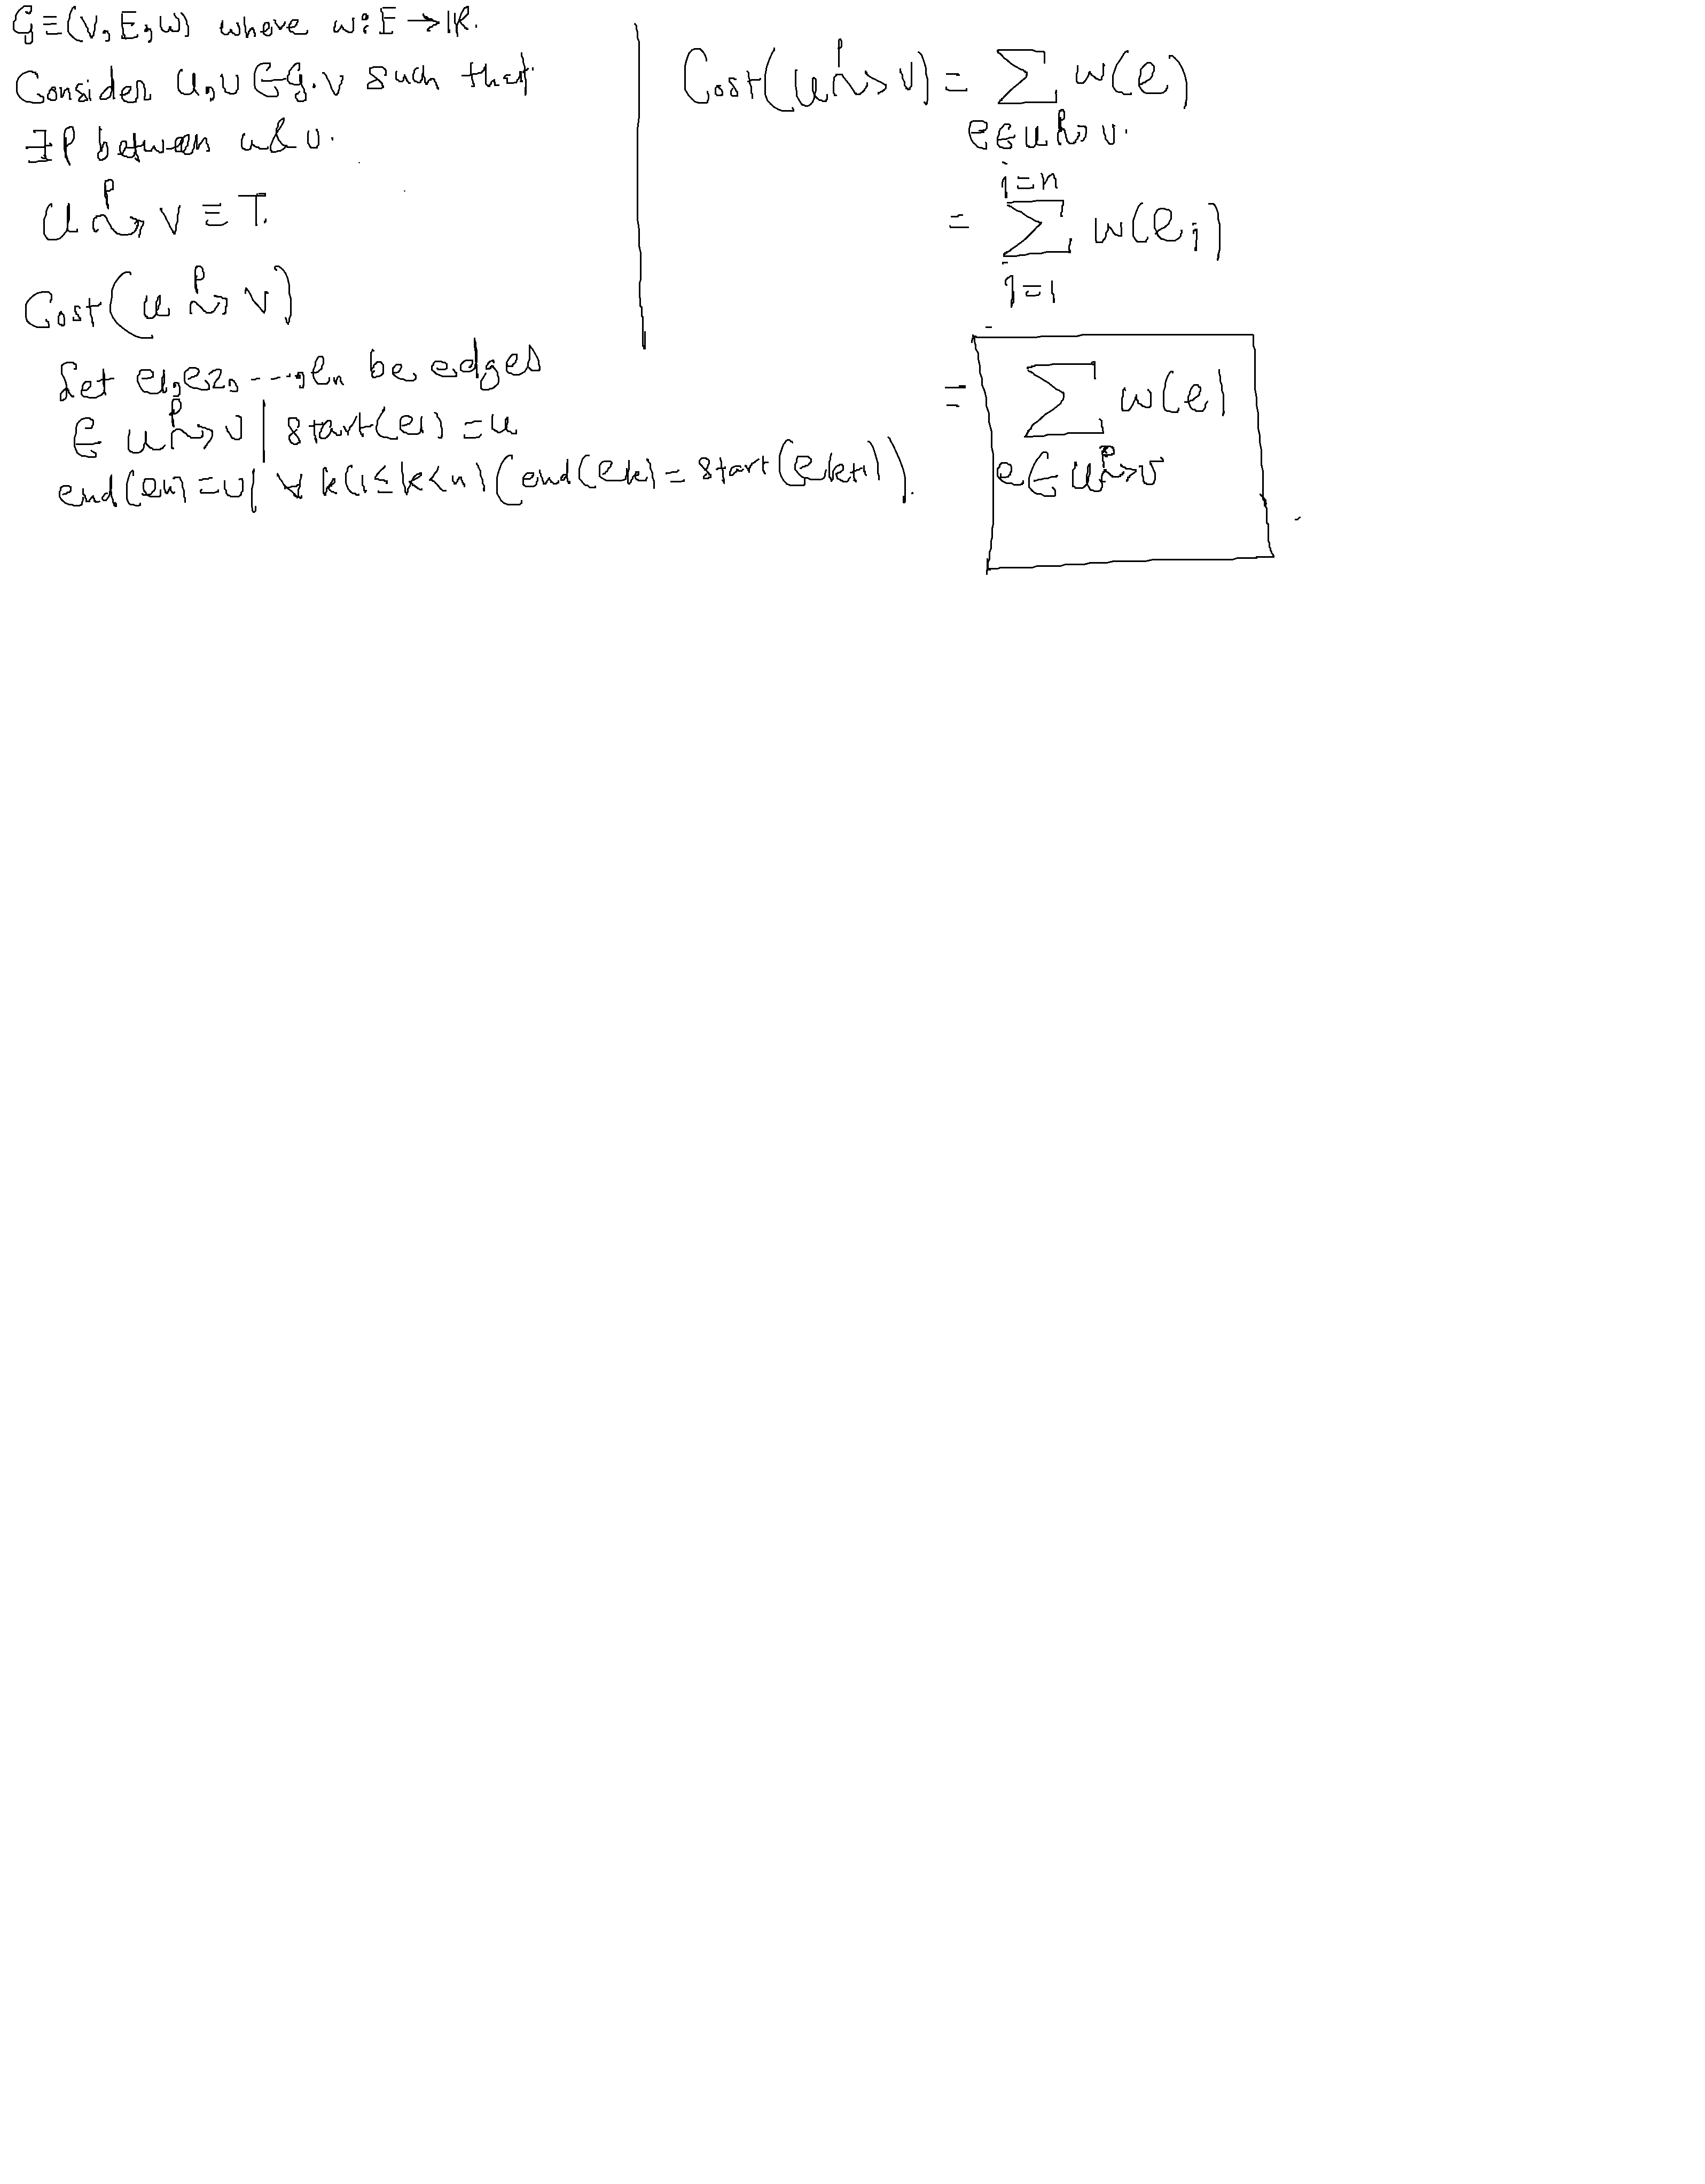 G≡(V,E,W) where w:E→ℝ.
Consider u,v∈G.V such that
∃P between u&v.
u ⤳ᴾ v ≡ T.
Cost(u ⤳ᴾ v)
Let e1,e2,----,en be edges
∈ u ⤳ᴾ v | start(e1) = u
end(en)=v| ∀ k(1≤k<n)(end(ek)=start(ek+1)).
Cost(u ⤳ᴾ v) = ∑ w(e)
e∈u ⤳ᴾ v.
i=n
= ∑ w(ei)
i=1
= ∑ w(e)
e∈u ⤳ᴾ v